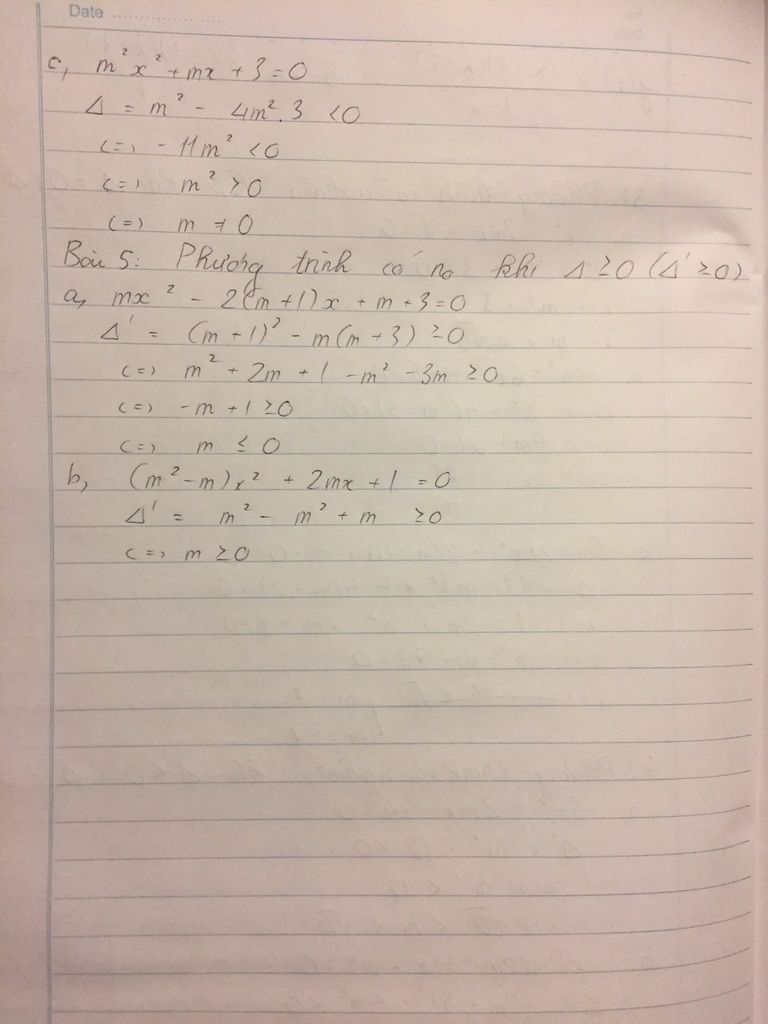 Date ....................
c, m²x² + mx + 3 = 0
Δ = m² - 4m².3 < 0
<=> - 11m² < 0
<=> m² > 0
<=> m ≠ 0
Bài 5: Phương trình có no khi Δ ≥ 0 (Δ' ≥ 0)
a, mx² - 2(m + 1)x + m + 3 = 0
Δ' = (m + 1)² - m(m + 3) ≥ 0
<=> m² + 2m + 1 - m² - 3m ≥ 0
<=> -m + 1 ≥ 0
<=> m ≤ 0
b, (m² - m)x² + 2mx + 1 = 0
Δ' = m² - m² + m ≥ 0
<=> m ≥ 0